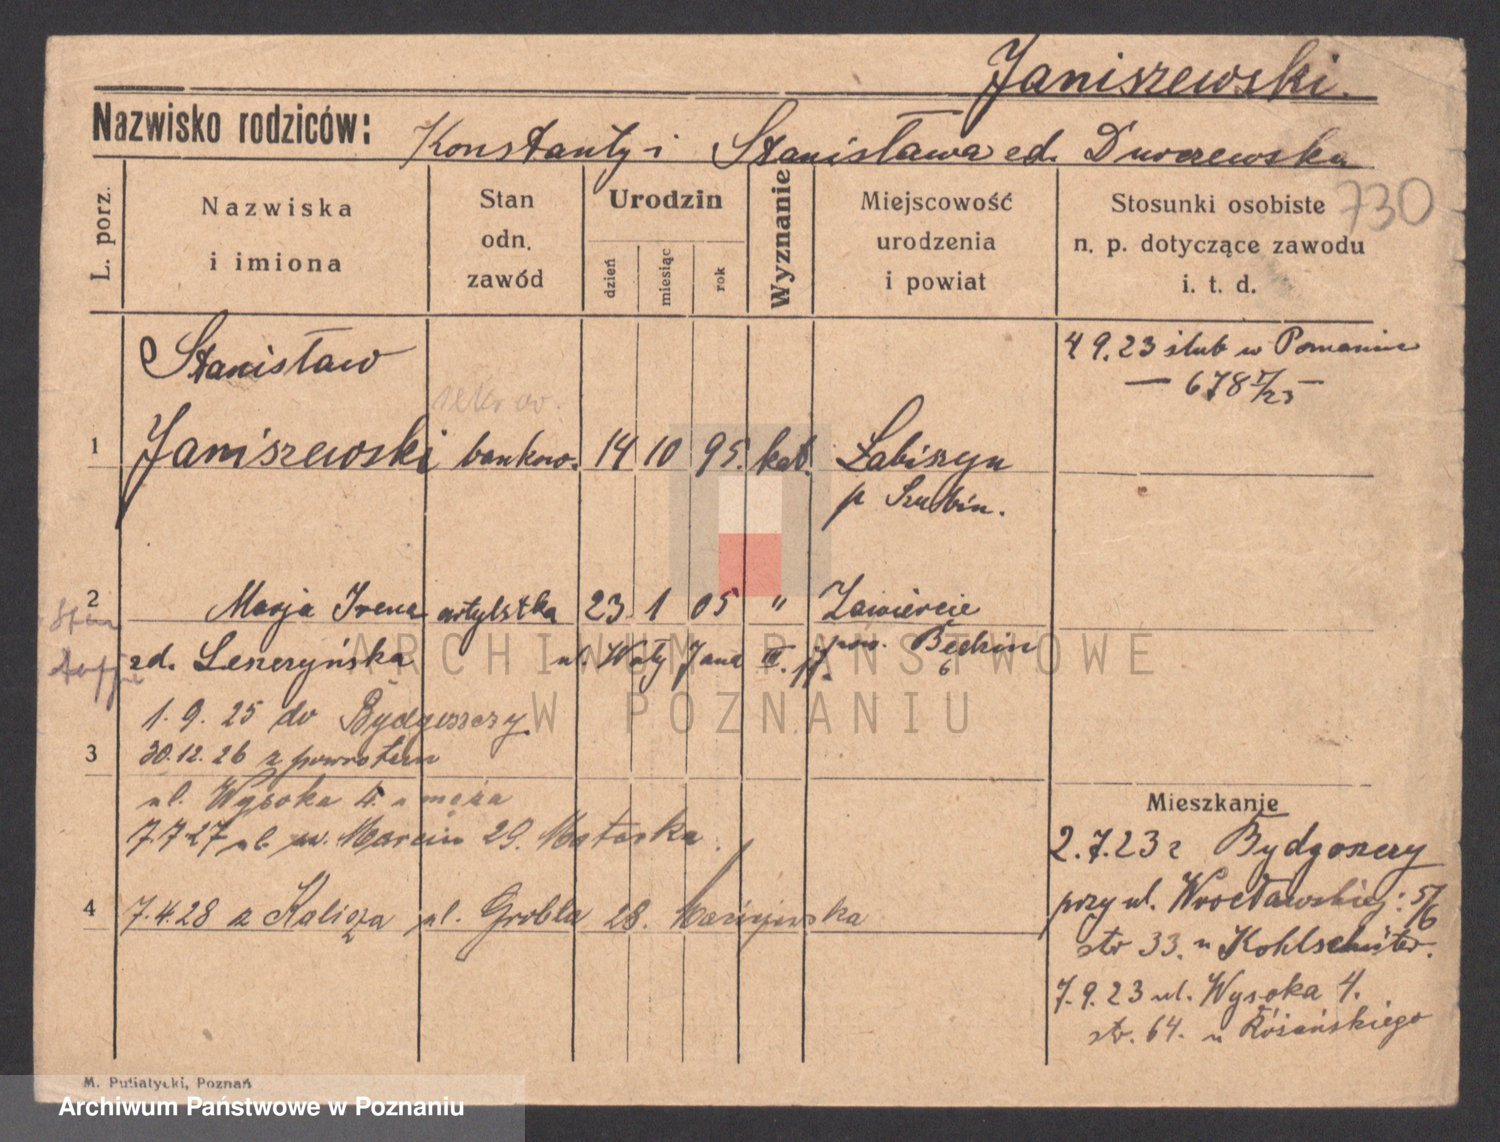 Janiszewski.
Nazwisko rodziców: Konstanty i Stanisława zd.
730
L. porz.
Nazwiska i imiona
Stan odn. zawód
Urodzin
dzień
miesiąc
rok
Wyznanie
Miejscowość urodzenia i powiat
Stosunki osobiste n. p. dotyczące zawodu i. t. d.
Stanisław
4 9.23 ślub w Poznaniu
— 678 V/23 —
1 Janiszewski bankow. 14 10 95. kat. Łabiszyn
p Szubin.
2 Marja Irena artystka 23 1 05 " Zawiercie
zd. Leszczyńska ul. Wały Jana III. 17. pow. Będzin
6
1. 9. 25 do Bydgoszczy
3 30.12.26 z powrotem
ul. Wysoka 4. u męża
7.7.27 ul. św. Marcin 29.
4 7.4.28 z Kalisza ul. Grobla 28.
Mieszkanie
2.7.23 z Bydgoszczy
przy ul. Wrocławskiej: 5/6
str 33. u Kohlschütter.
7.9.23 ul. Wysoka 4.
str. 64. u Różańskiego
M. Putiatycki, Poznań
ARCHIWUM PAŃSTWOWE
W POZNANIU
Archiwum Państwowe w Poznaniu